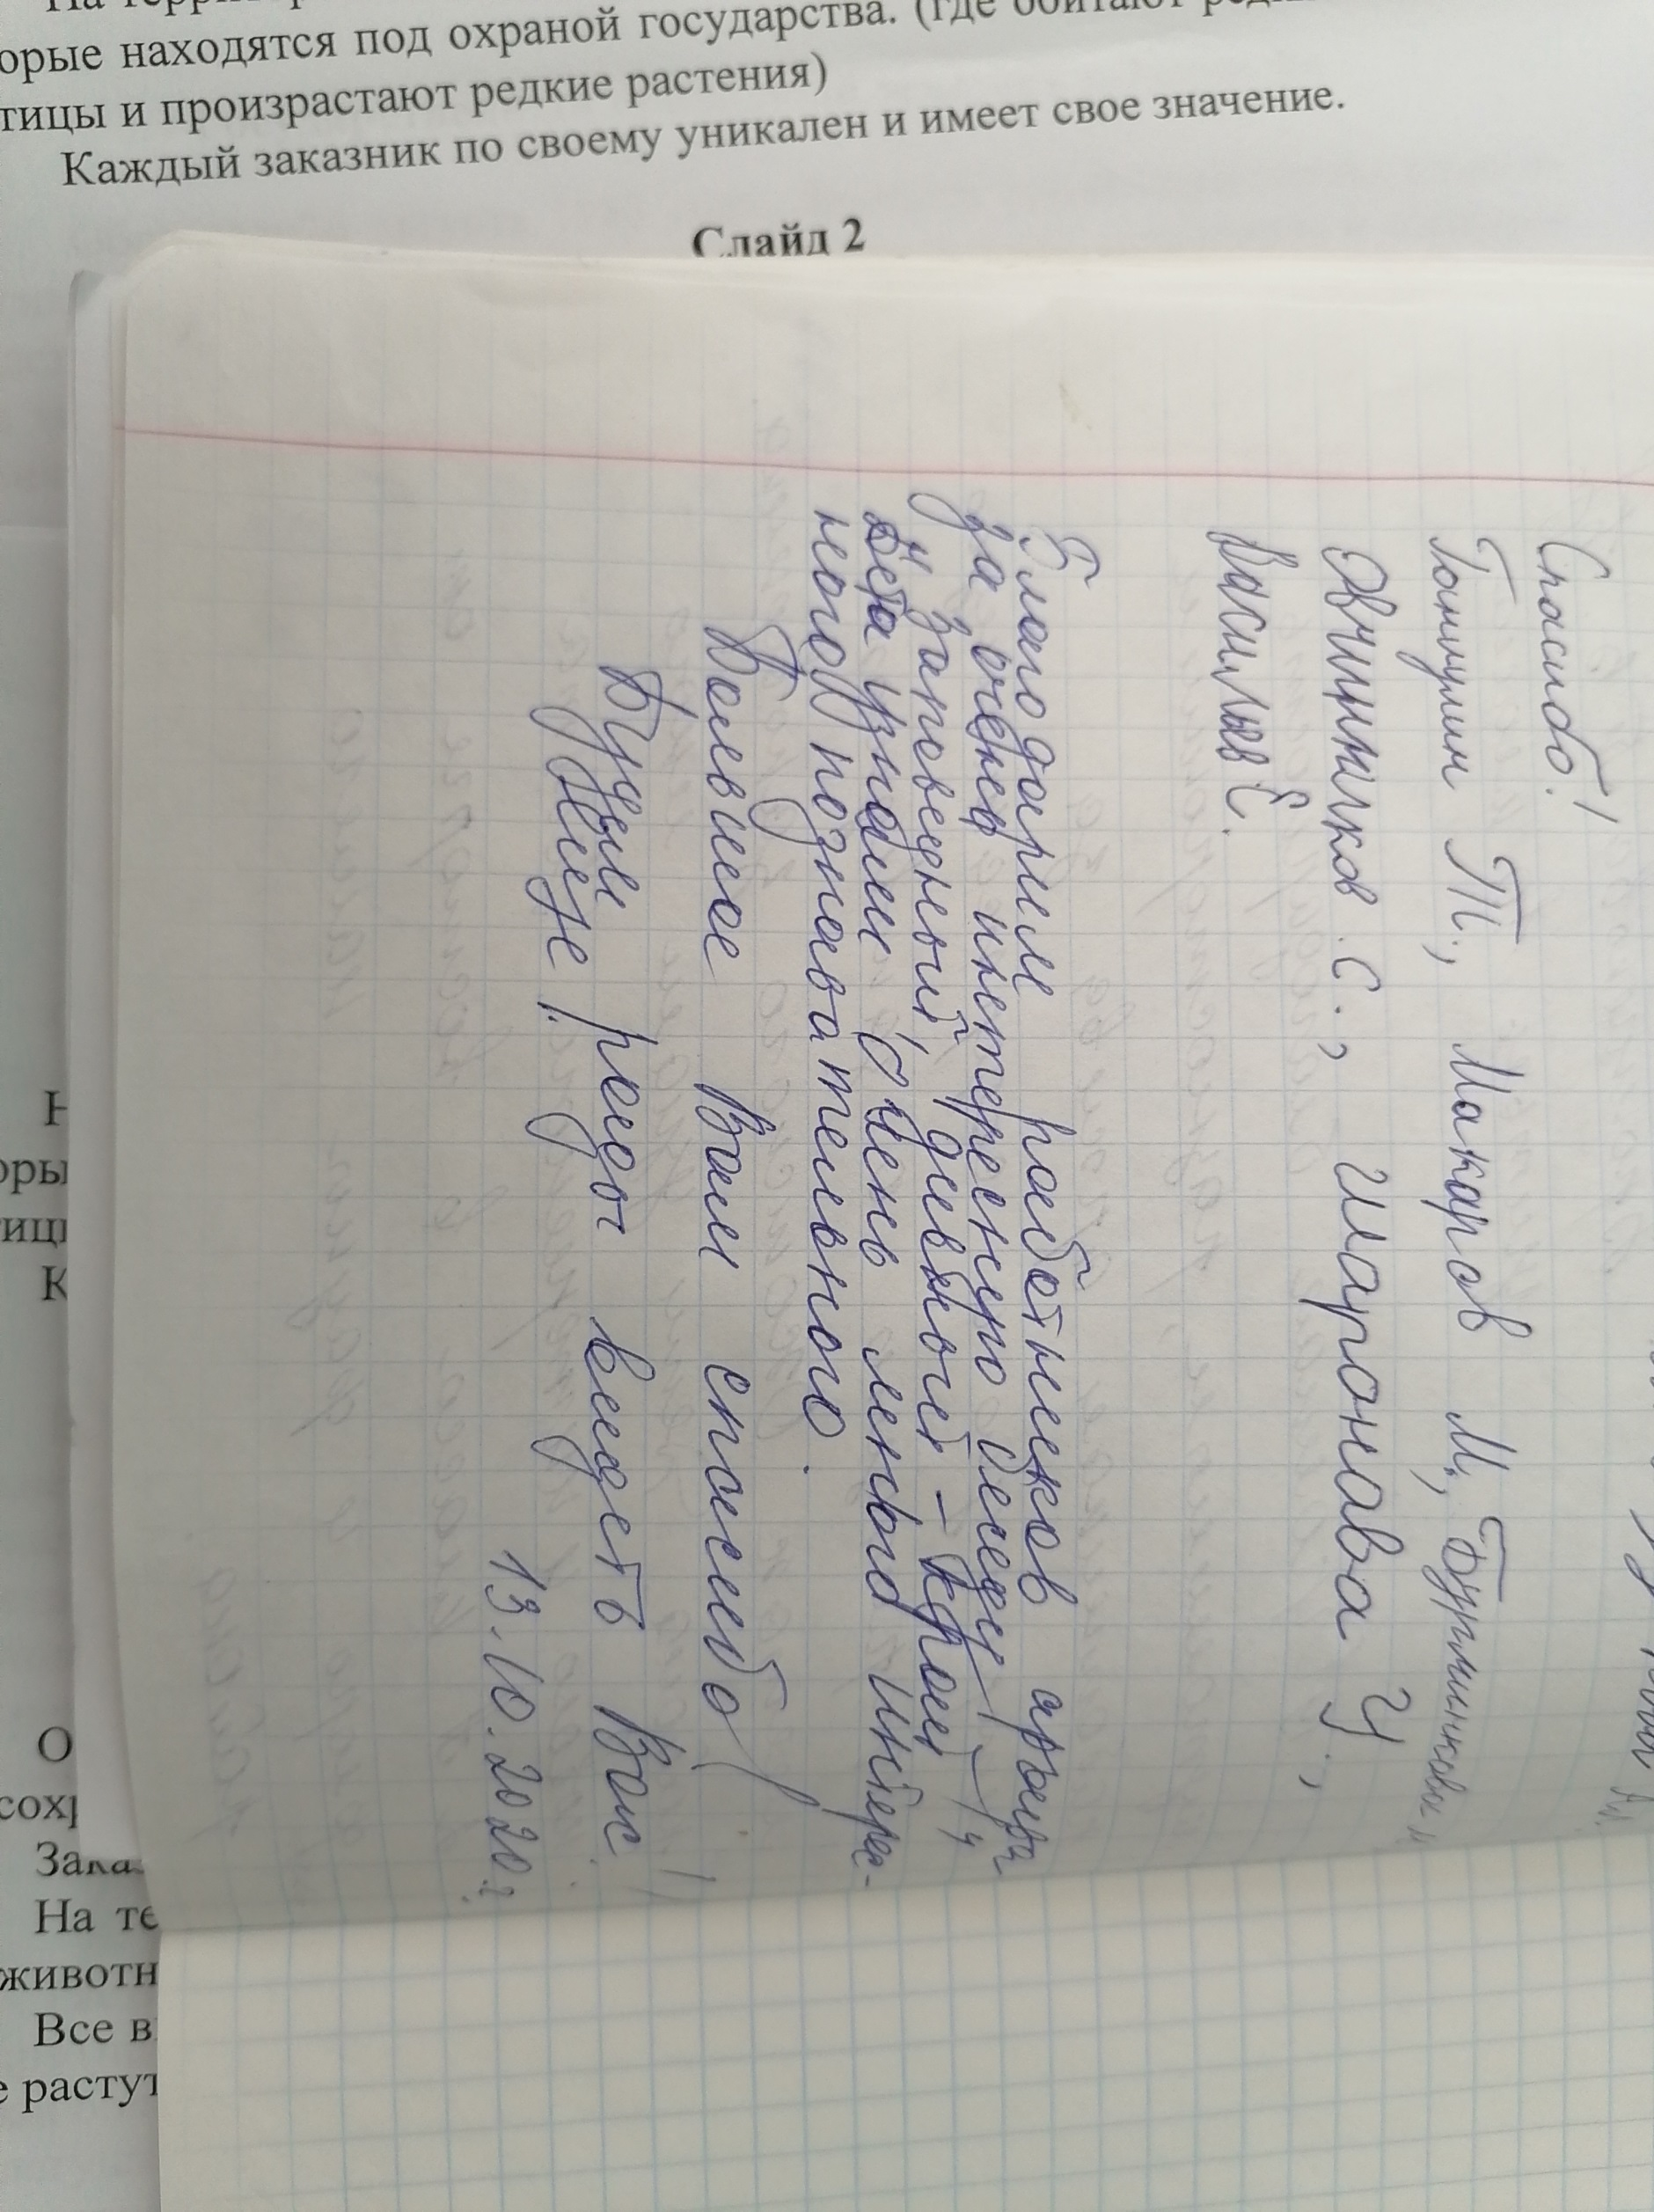 орые находятся под охраной государства. (где обитают
тицы и произрастают редкие растения)
Каждый заказник по своему уникален и имеет свое значение.
Слайд 2
Спасибо!
Т., Макаров М.,
Овчинников С., Шаронова У.,
Васильев Е.
Благодарим работников
за очень интересную беседу
"Заповедный дивный - край",
дети узнали очень много интерес-
ного, познавательного.
Большое Вам спасибо!
Будем рады видеть Вас
ещё!
13.10.2020г
Н
оры
тиц
К
О
сохр
Зака
На те
животн
Все в
е растут